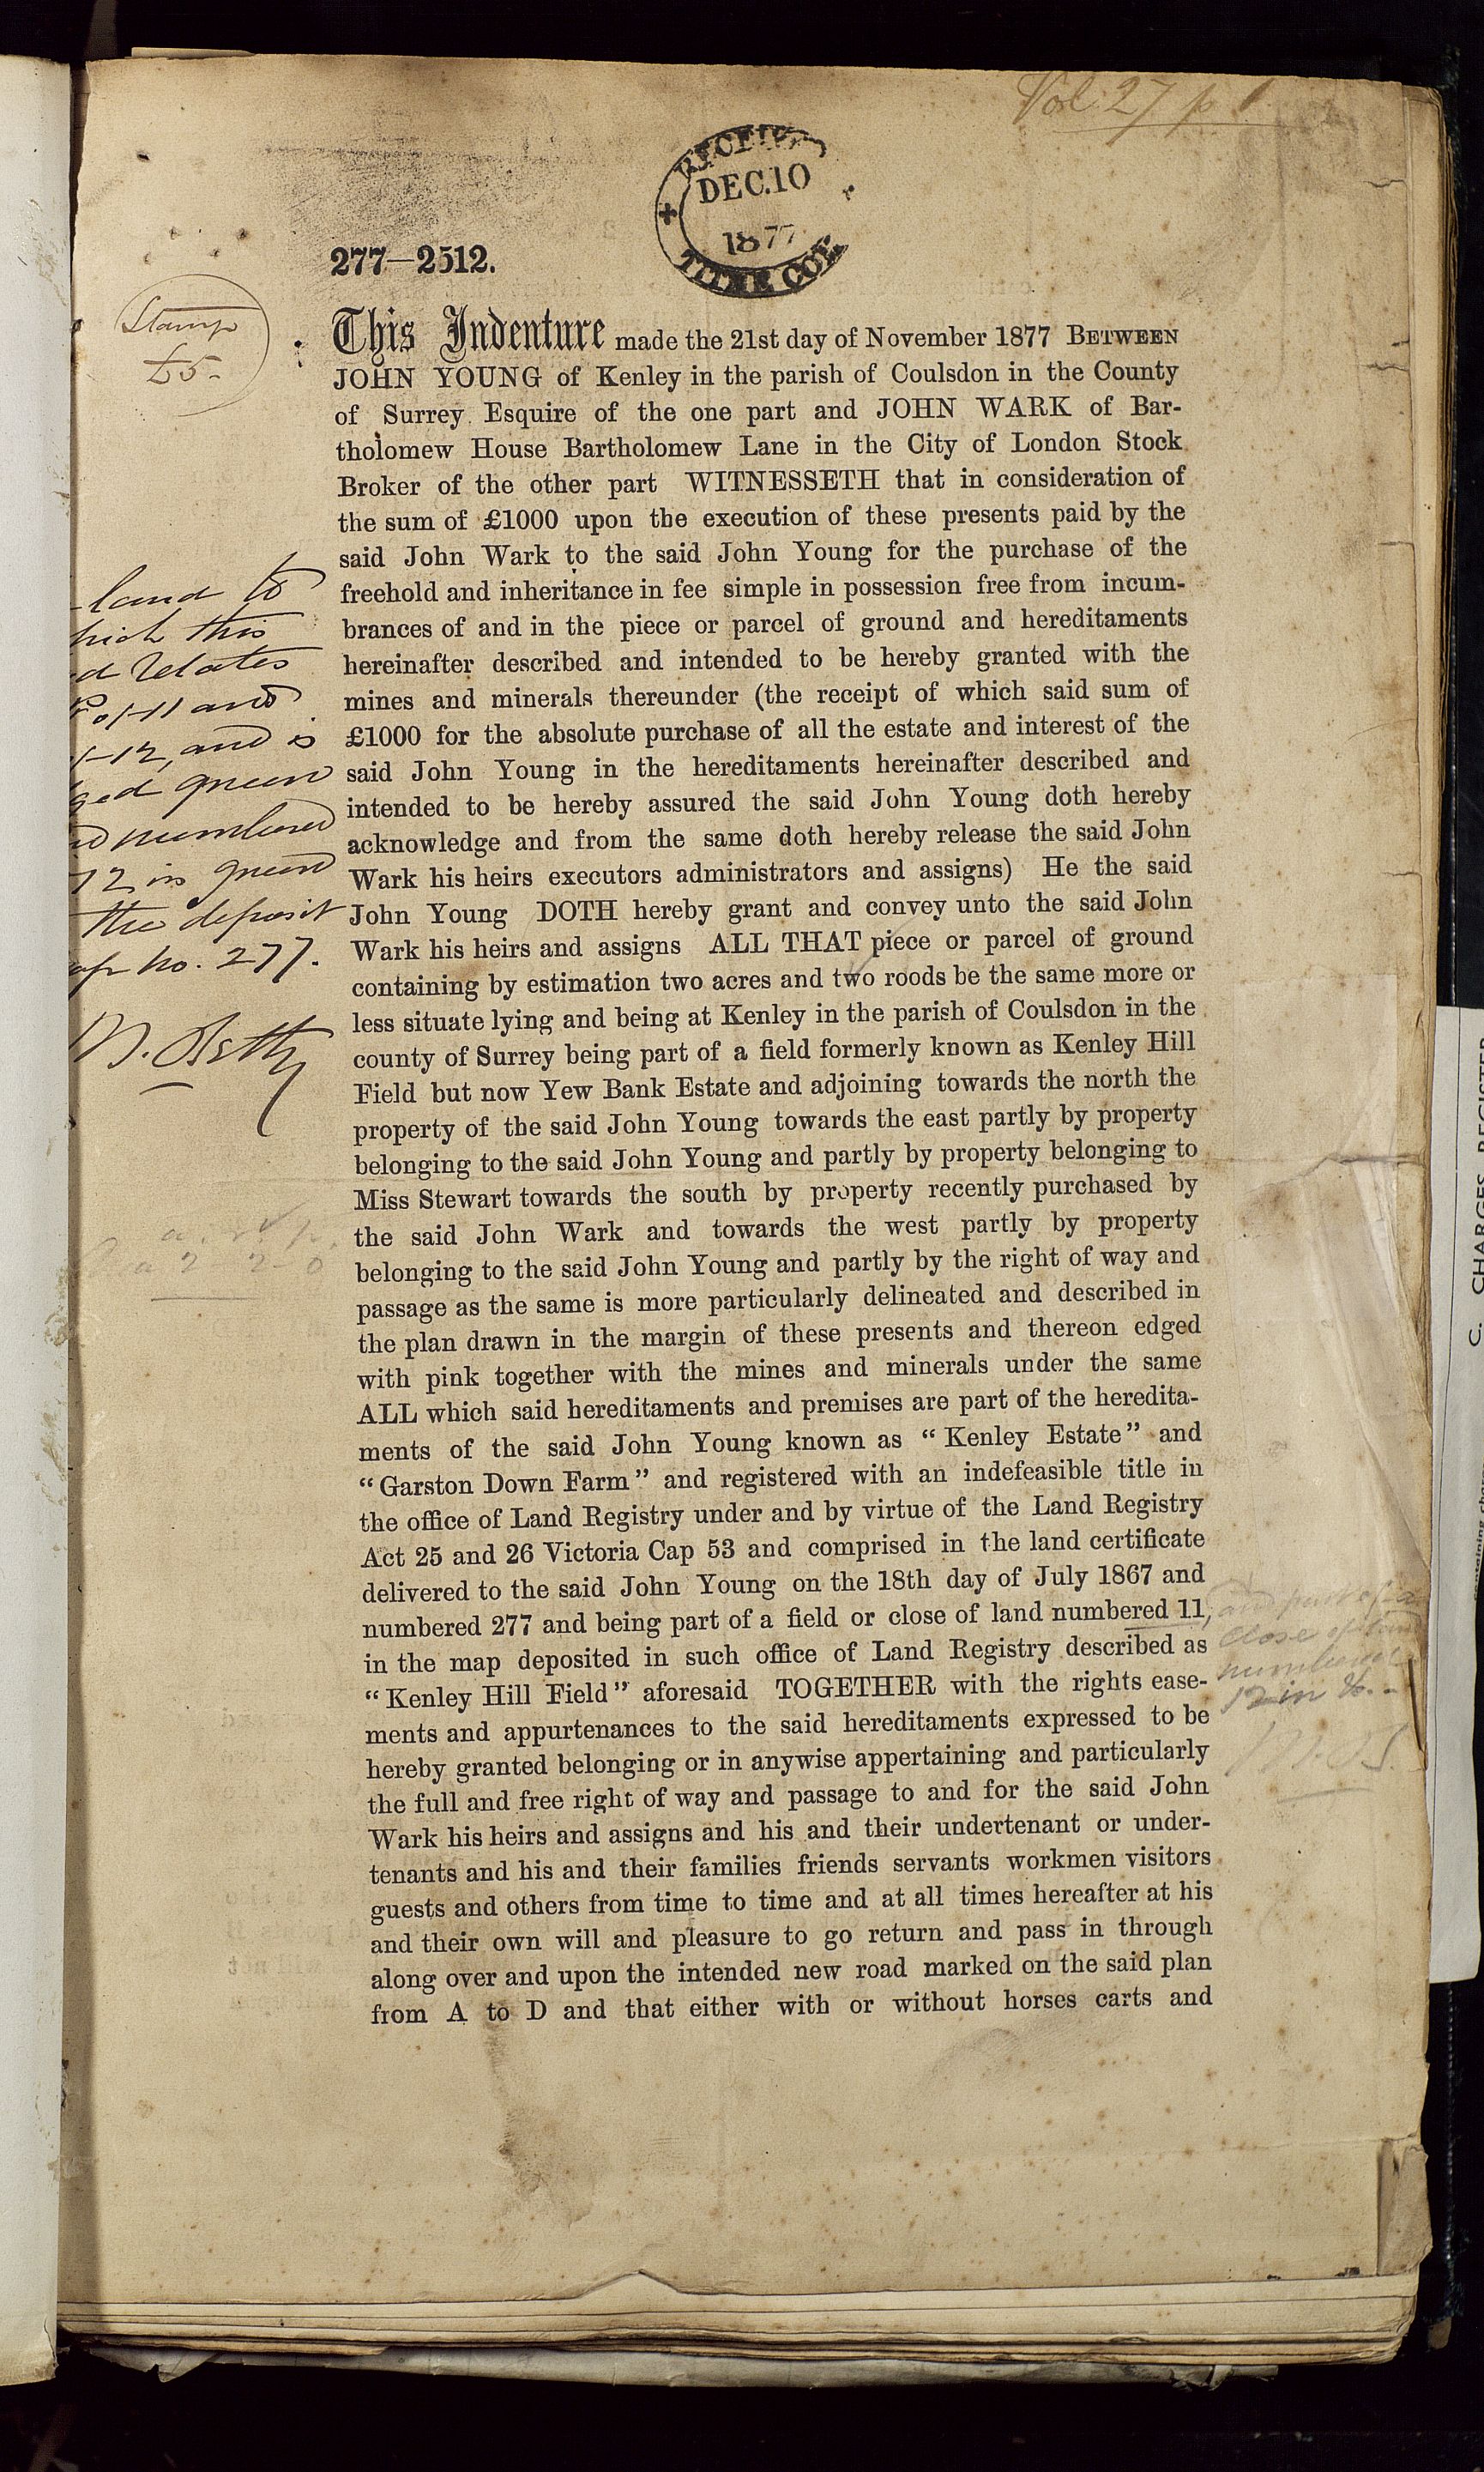 Vol. 27 p 1
RECEIVED
DEC. 10
1877
277—2512.
Stamp
£5-
This Indenture made the 21st day of November 1877 BETWEEN
JOHN YOUNG of Kenley in the parish of Coulsdon in the County
of Surrey Esquire of the one part and JOHN WARK of Bar-
tholomew House Bartholomew Lane in the City of London Stock
Broker of the other part WITNESSETH that in consideration of
the sum of £1000 upon the execution of these presents paid by the
said John Wark to the said John Young for the purchase of the
freehold and inheritance in fee simple in possession free from incum-
brances of and in the piece or parcel of ground and hereditaments
hereinafter described and intended to be hereby granted with the
mines and minerals thereunder (the receipt of which said sum of
£1000 for the absolute purchase of all the estate and interest of the
said John Young in the hereditaments hereinafter described and
intended to be hereby assured the said John Young doth hereby
acknowledge and from the same doth hereby release the said John
Wark his heirs executors administrators and assigns) He the said
John Young DOTH hereby grant and convey unto the said John
Wark his heirs and assigns ALL THAT piece or parcel of ground
containing by estimation two acres and two roods be the same more or
less situate lying and being at Kenley in the parish of Coulsdon in the
county of Surrey being part of a field formerly known as Kenley Hill
Field but now Yew Bank Estate and adjoining towards the north the
property of the said John Young towards the east partly by property
belonging to the said John Young and partly by property belonging to
Miss Stewart towards the south by property recently purchased by
the said John Wark and towards the west partly by property
belonging to the said John Young and partly by the right of way and
passage as the same is more particularly delineated and described in
the plan drawn in the margin of these presents and thereon edged
with pink together with the mines and minerals under the same
ALL which said hereditaments and premises are part of the heredita-
ments of the said John Young known as “Kenley Estate” and
“Garston Down Farm” and registered with an indefeasible title in
the office of Land Registry under and by virtue of the Land Registry
Act 25 and 26 Victoria Cap 53 and comprised in the land certificate
delivered to the said John Young on the 18th day of July 1867 and
numbered 277 and being part of a field or close of land numbered 11,
in the map deposited in such office of Land Registry described as
“Kenley Hill Field” aforesaid TOGETHER with the rights ease-
ments and appurtenances to the said hereditaments expressed to be
hereby granted belonging or in anywise appertaining and particularly
the full and free right of way and passage to and for the said John
Wark his heirs and assigns and his and their undertenant or under-
tenants and his and their families friends servants workmen visitors
guests and others from time to time and at all times hereafter at his
and their own will and pleasure to go return and pass in through
along over and upon the intended new road marked on the said plan
from A to D and that either with or without horses carts and
land to
hich this
ed relates
11 and
12, and is
ged green
nd numbered
12 in green
the deposit
ap No. 277.
a. r. p.
2 2 0
and part of a
close of land
numbered
12 in
C. CHARGES REGISTER